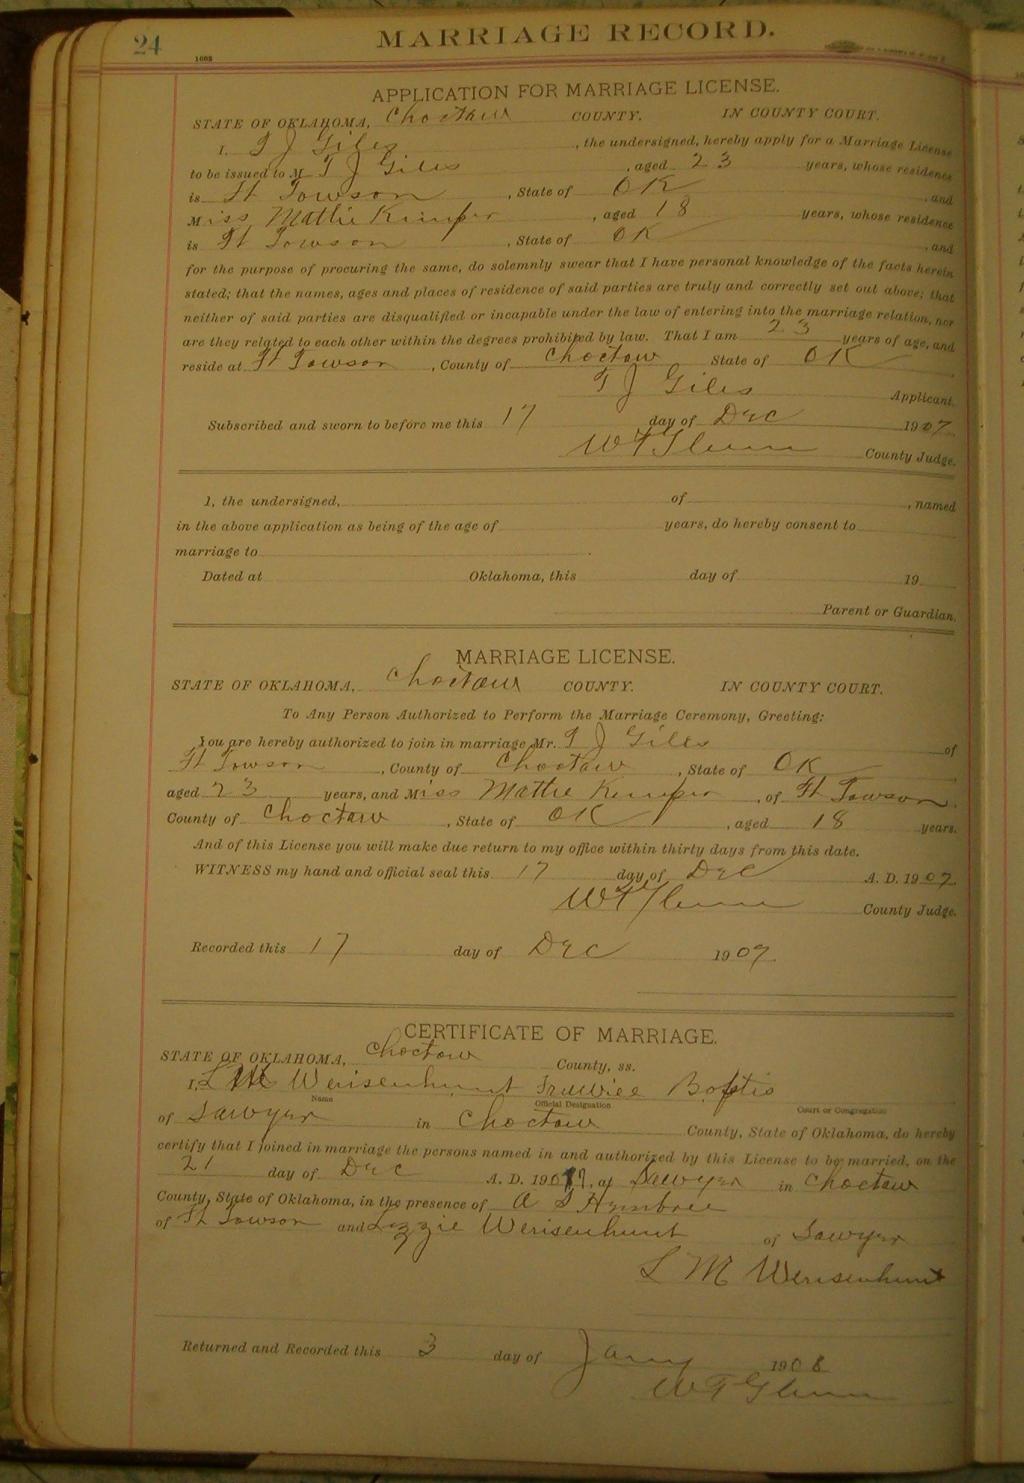 24
MARRIAGE RECORD.
1003
APPLICATION FOR MARRIAGE LICENSE.
STATE OF OKLAHOMA, Choctaw COUNTY. IN COUNTY COURT.
I, T J Giles, the undersigned, hereby apply for a Marriage License
to be issued to M T J Giles, aged 23 years, whose residence
is Ft Towson, State of OK, and
Miss Mattie Kemper, aged 18 years, whose residence
is Ft Towson, State of OK, and
for the purpose of procuring the same, do solemnly swear that I have personal knowledge of the facts herein
stated; that the names, ages and places of residence of said parties are truly and correctly set out above; that
neither of said parties are disqualified or incapable under the law of entering into the marriage relation, nor
are they related to each other within the degrees prohibited by law. That I am 23 years of age, and
reside at Ft Towson, County of Choctaw State of OK
T J Giles Applicant.
Subscribed and sworn to before me this 17 day of Dec 1907.
W T Glenn County Judge.
I, the undersigned, of , named
in the above application as being of the age of years, do hereby consent to
marriage to .
Dated at Oklahoma, this day of 19
Parent or Guardian.
MARRIAGE LICENSE.
STATE OF OKLAHOMA, Choctaw COUNTY. IN COUNTY COURT.
To Any Person Authorized to Perform the Marriage Ceremony, Greeting:
You are hereby authorized to join in marriage Mr. T J Giles of
Ft Towson, County of Choctaw, State of OK
aged 23 years, and Miss Mattie Kemper, of Ft Towson.
County of Choctaw, State of OK, aged 18 years.
And of this License you will make due return to my office within thirty days from this date.
WITNESS my hand and official seal this 17 day of Dec A. D. 1907.
W T Glenn County Judge.
Recorded this 17 day of Dec 1907.
CERTIFICATE OF MARRIAGE.
STATE OF OKLAHOMA, Choctaw County, ss.
I, L M Werisenhunt
Name Official Designation Court or Congregation
of Sawyer in Choctaw County, State of Oklahoma, do hereby
certify that I joined in marriage the persons named in and authorized by this License to be married, on the
21 day of Dec A. D. 1907, at Sawyer in Choctaw
County, State of Oklahoma, in the presence of A S Hembree
of Ft Towson and Lizzie Werisenhunt of Sawyer
L M Werisenhunt
Returned and Recorded this 3 day of Jany 1908
W T Glenn